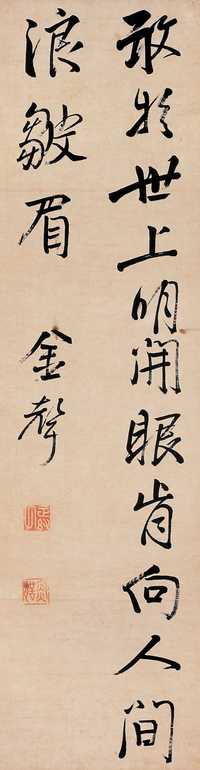 敢於世上明開眼肯向人間
浪皺眉
金聲